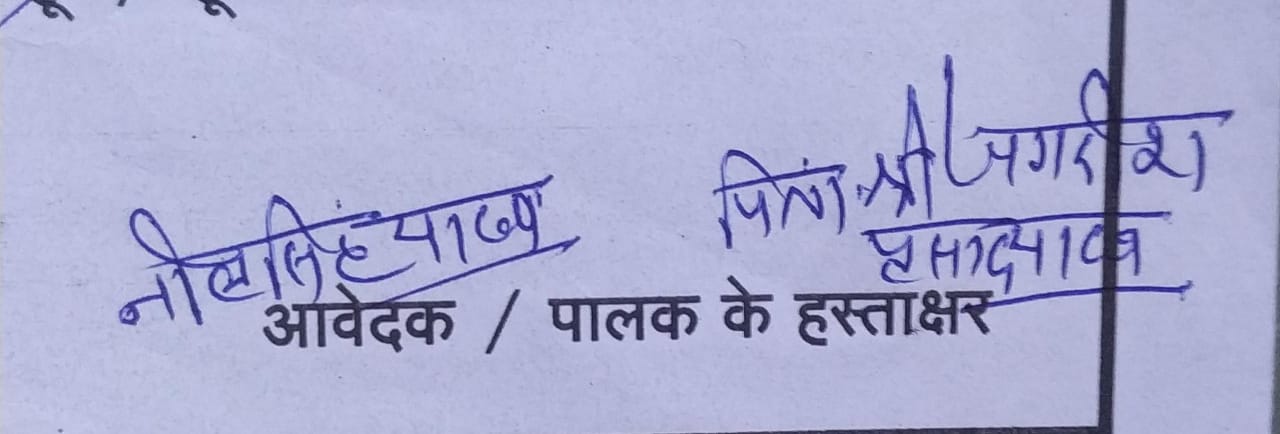 पिता श्री जगदीश
नीलसिंह यादव
प्रसाद यादव
आवेदक / पालक के हस्ताक्षर